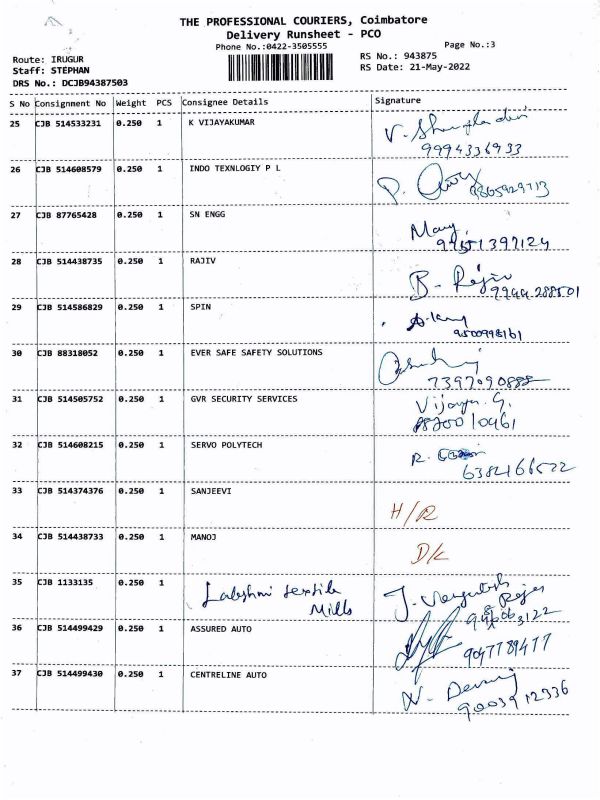 THE PROFESSIONAL COURIERS, Coimbatore
Delivery Runsheet - PCO
Phone No.:0422-3505555 Page No.:3
Route: IRUGUR RS No.: 943875
Staff: STEPHAN RS Date: 21-May-2022
DRS No.: DCJB94387503
S No Consignment No Weight PCS Consignee Details Signature
25 CJB 514533231 0.250 1 K VIJAYAKUMAR
9994336933
26 CJB 514608579 0.250 1 INDO TEXNLOGIY P L
27 CJB 87765428 0.250 1 SN ENGG
28 CJB 514438735 0.250 1 RAJIV B-
29 CJB 514586829 0.250 1 SPIN
30 CJB 88318052 0.250 1 EVER SAFE SAFETY SOLUTIONS
7397090888
31 CJB 514505752 0.250 1 GVR SECURITY SERVICES
32 CJB 514608215 0.250 1 SERVO POLYTECH R.
6382166522
33 CJB 514374376 0.250 1 SANJEEVI H/R
34 CJB 514438733 0.250 1 MANOJ D/L
35 CJB 1133135 0.250 1 Lakshmi textile
Mills
36 CJB 514499429 0.250 1 ASSURED AUTO
9047789477
37 CJB 514499430 0.250 1 CENTRELINE AUTO
9003912336